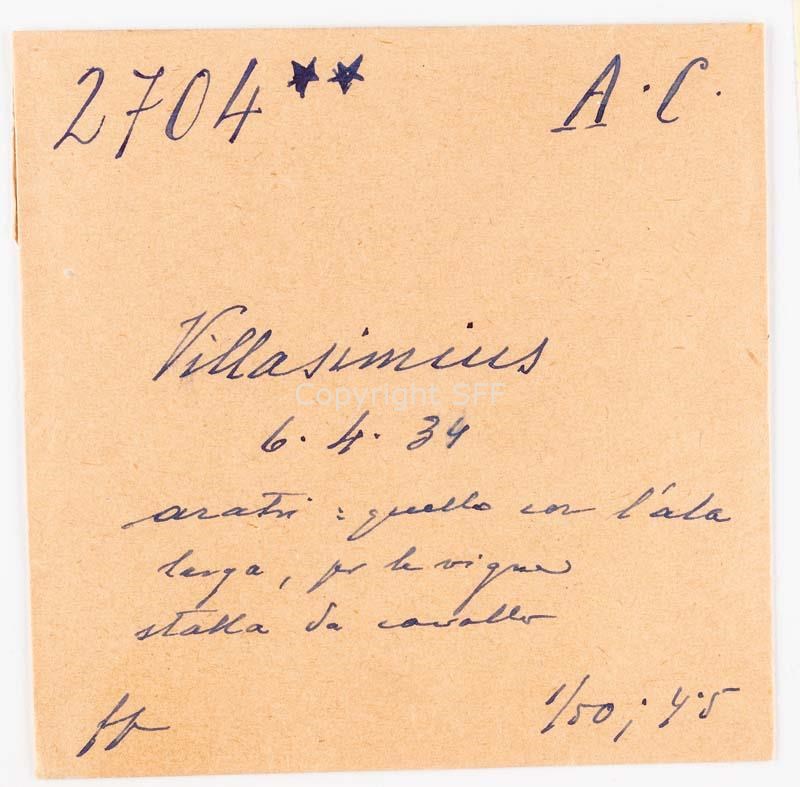 2704 ★★ A. C.
Villasimius
Copyright SFF
6. 4. 34
aratri : quello con l'ala
larga, per le vigne
stalla da cavallo
ff 1/50 ; 4.5